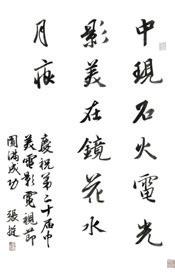 中現石火電光
影美在鏡花水
月痕
慶祝第二十届中
美電影電視節
圓滿成功